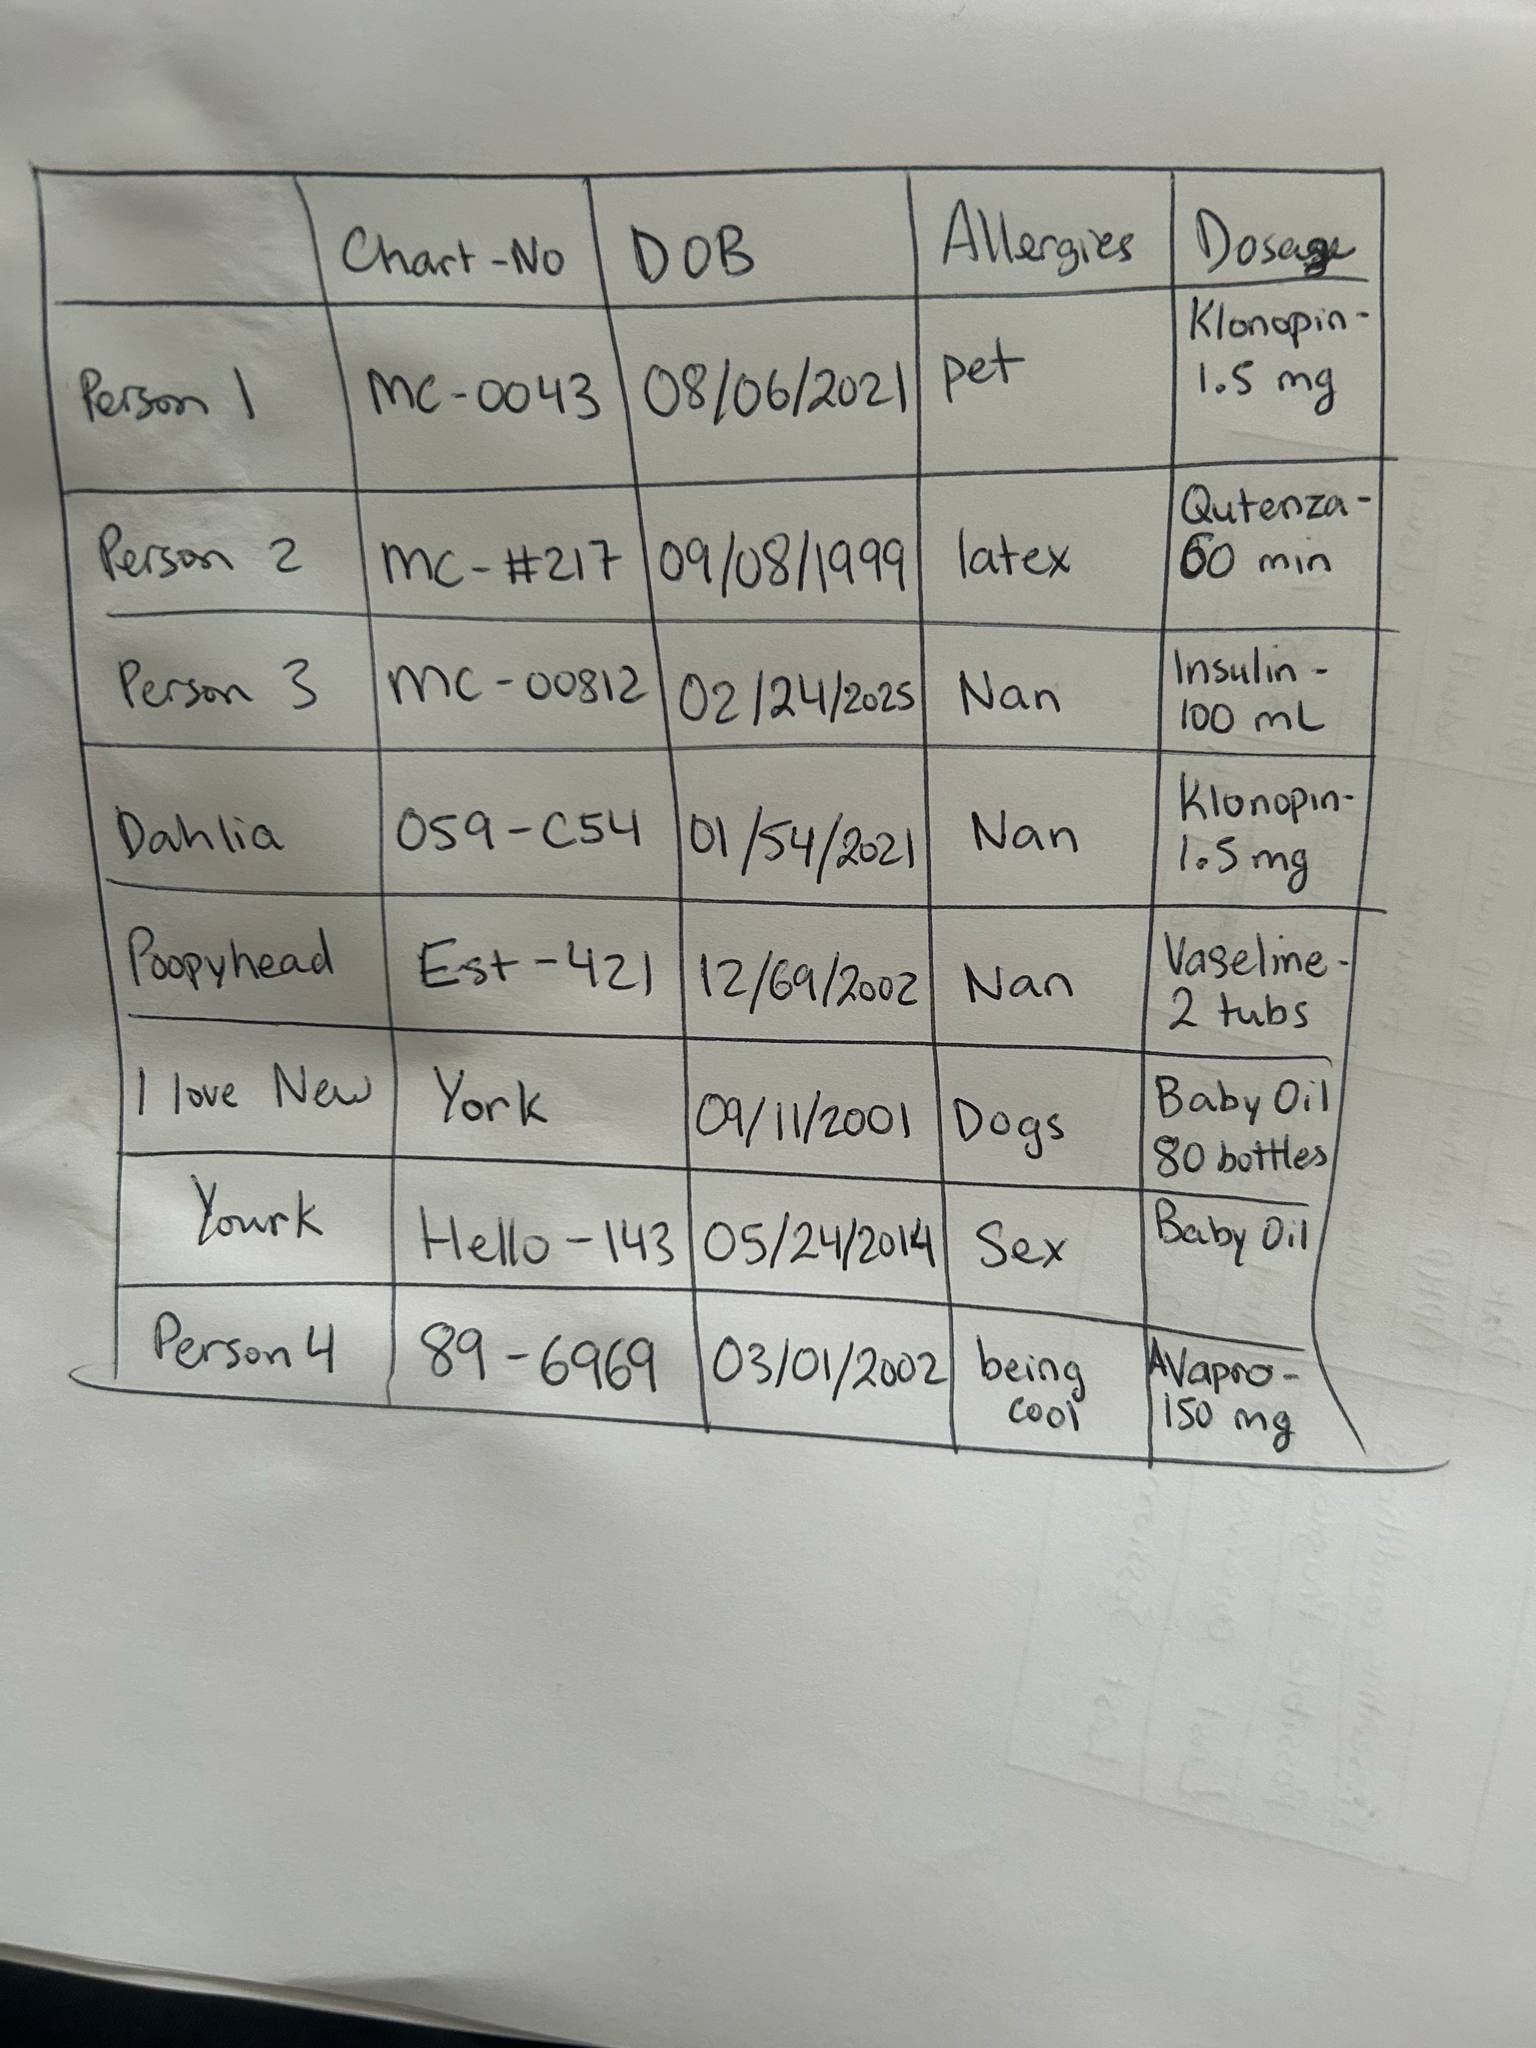 Chart-No DOB Allergies Dosage
Person 1 MC-0043 08/06/2021 pet Klonopin-
1.5 mg
Person 2 MC-#217 09/08/1999 latex Qutenza-
60 min
Person 3 MC-00812 02/24/2025 Nan Insulin-
100 mL
Dahlia 059-C54 01/54/2021 Nan Klonopin-
1.5 mg
Poopyhead Est-421 12/69/2002 Nan Vaseline-
2 tubs
I love New York 09/11/2001 Dogs Baby Oil
80 bottles
Yourk Hello-143 05/24/2014 Sex Baby Oil
Person 4 89-6969 03/01/2002 being Avapro-
cool 150 mg